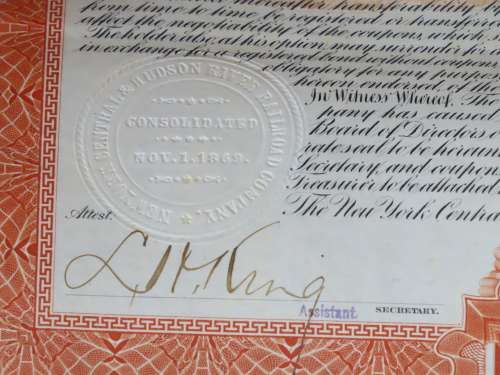 transferability
from time to time be registered or transferr
affect the negotiability of the coupons which
The holder also, at his option may surrender for
in exchange for a registered bond without coupons
obligatory for any purpose
hereon endorsed of the
In Witness Whereof. The
pany has caused
Board of Directors
rate seal to be hereun
Secretary, and coupons
Treasurer to be attached
The New York Central
NEW YORK CENTRAL & HUDSON RIVER RAILROAD COMPANY.
CONSOLIDATED
NOV. 1. 1869.
Attest.
L. H. King
Assistant SECRETARY.